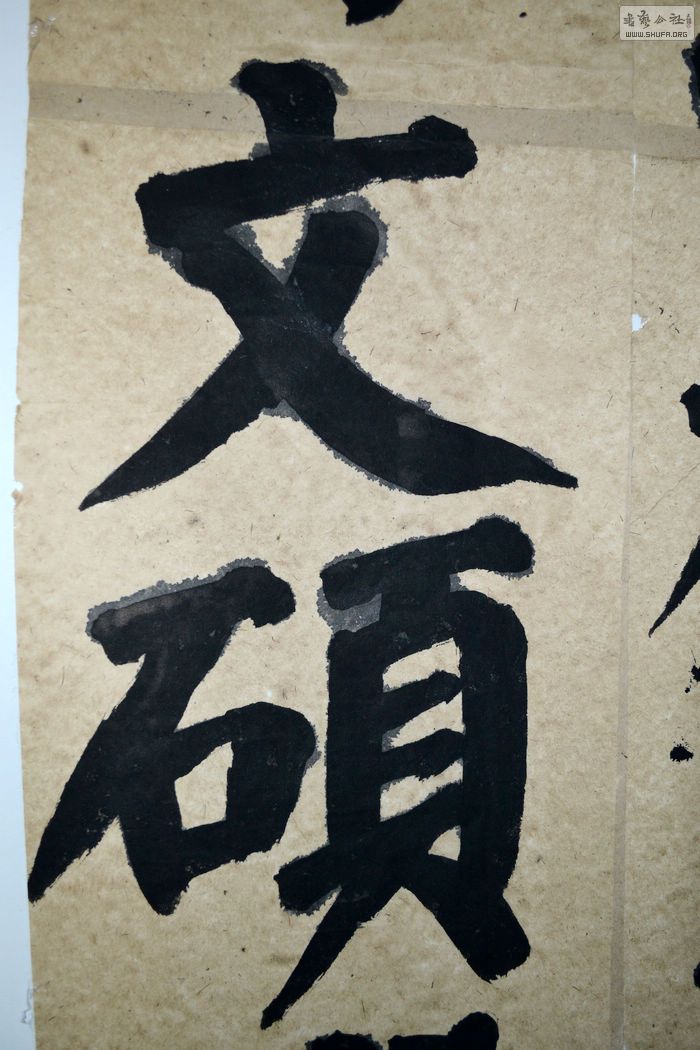 文
碩
書藝公社
WWW.SHUFA.ORG